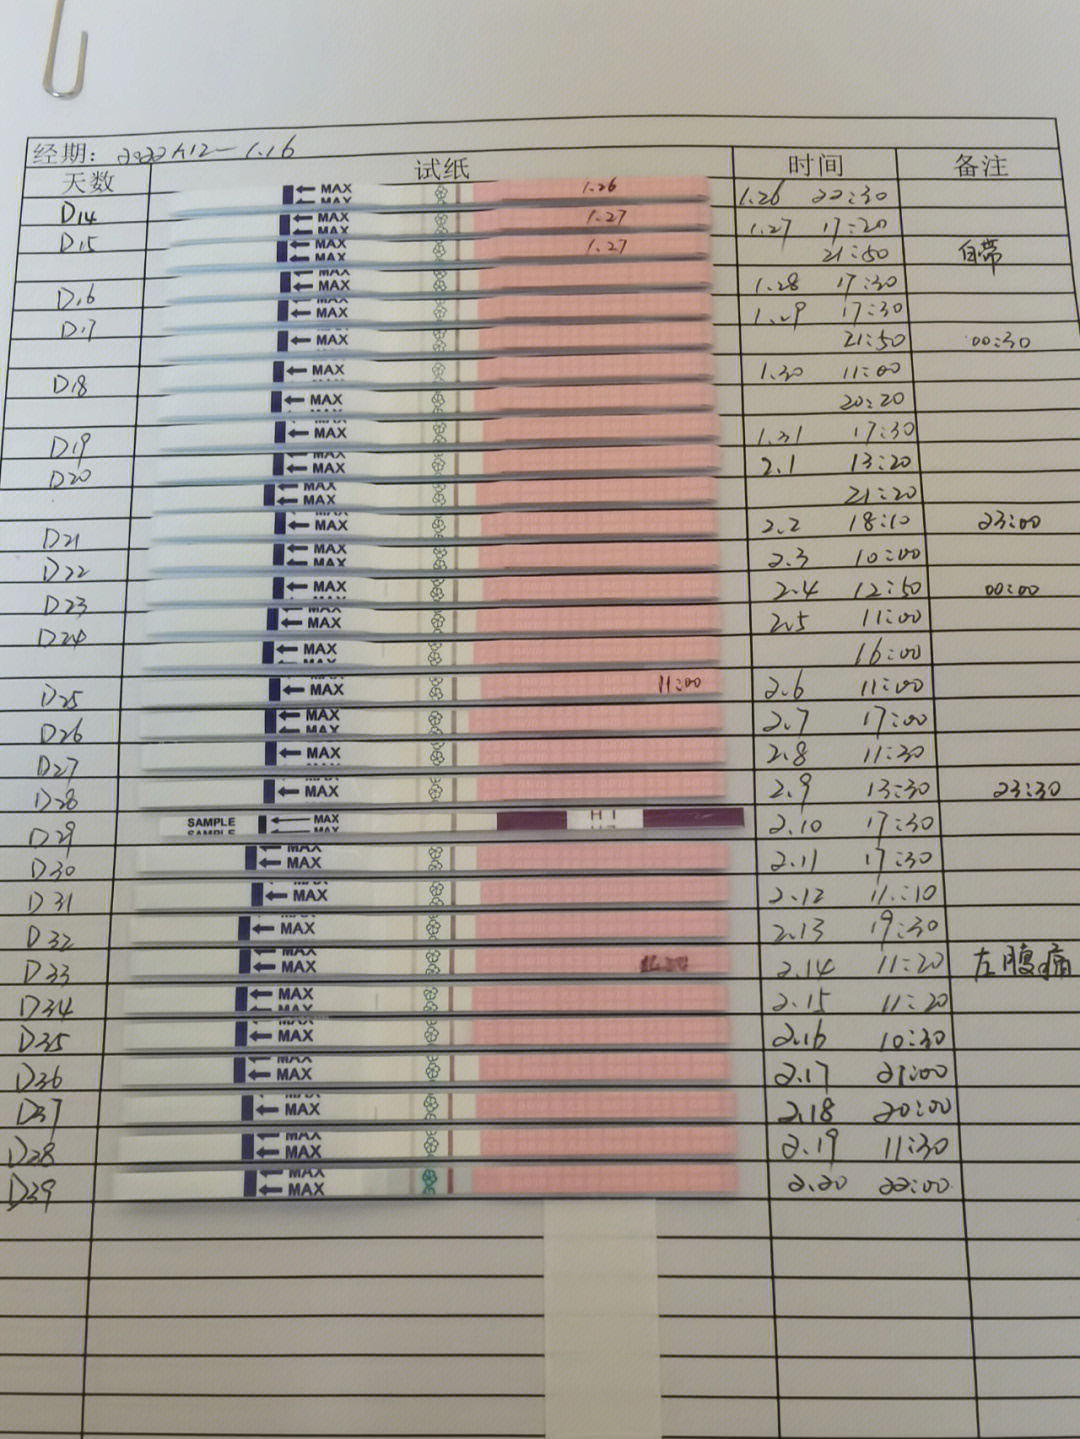 经期: 2022.1.12－1.16
天数 试纸 时间 备注
D14 MAX 1.26 1.26 22:30
MAX
D15 MAX 1.27 1.27 17:20
MAX
MAX 1.27 21:50 白带
MAX
D16 MAX 1.28 17:30
MAX
D17 MAX 1.29 17:30
MAX 21:50 00:30
D18 MAX 1.30 11:00
MAX 20:20
D19 MAX 1.31 17:30
D20 MAX 2.1 13:20
MAX
MAX 21:20
MAX
D21 MAX 2.2 18:10 23:00
D22 MAX 2.3 10:00
MAX
D23 MAX 2.4 12:50 00:00
D24 MAX 2.5 11:00
MAX 16:00
D25 MAX 11:00 2.6 11:00
D26 MAX 2.7 17:00
MAX
D27 MAX 2.8 11:30
D28 MAX 2.9 13:30 23:30
D29 SAMPLE MAX H1 2.10 17:30
SAMPLE MAX
D30 MAX 2.11 17:30
MAX
D31 MAX 2.12 11:10
D32 MAX 2.13 19:30
D33 MAX 2.14 11:20 左腹痛
MAX
D34 MAX 2.15 11:20
MAX
D35 MAX 2.16 10:30
D36 MAX 2.17 21:00
MAX
D37 MAX 2.18 20:00
D28 MAX 2.19 11:30
MAX
D39 MAX 2.20 22:00
MAX